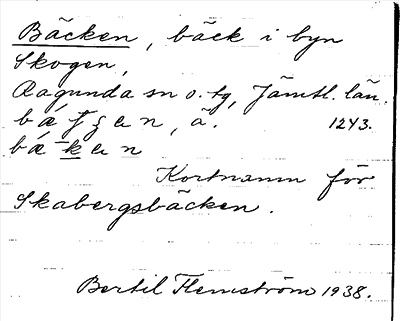 Bäcken, bäck i byn
Skogen,
Ragunda sn o. tg, Jämtl. län.
ä. 1243.
Kortnamn för
Skabergsbäcken.
Bertil Flemström 1938.